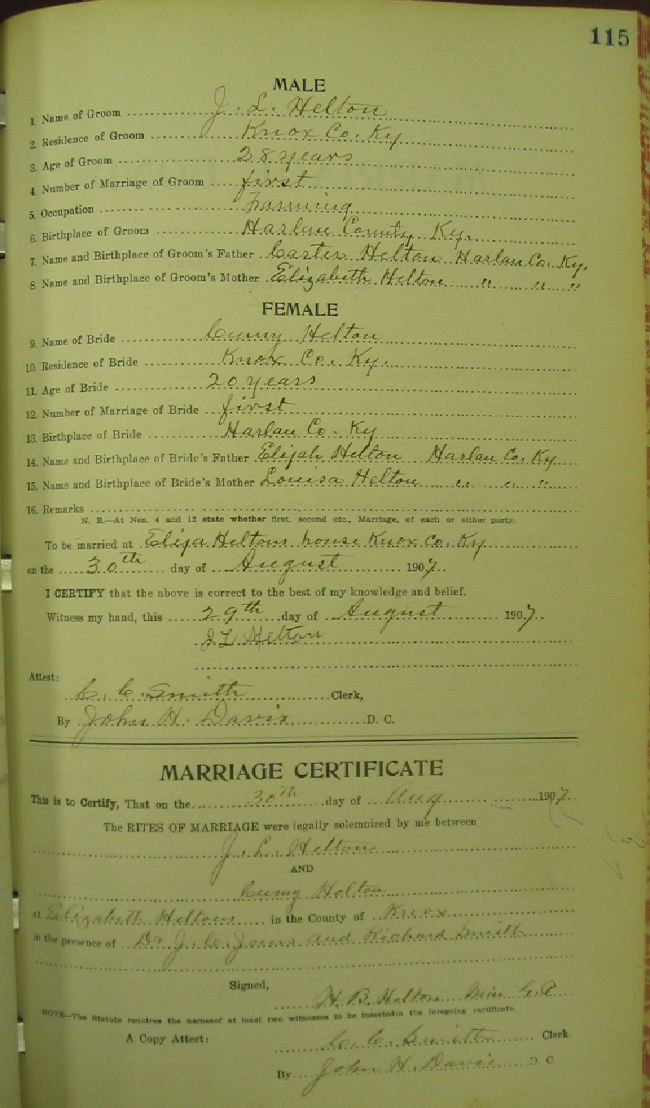 115
MALE
1. Name of Groom J. L. Helton
2. Residence of Groom Knox Co. Ky
3. Age of Groom 28 years
4. Number of Marriage of Groom first
5. Occupation Farming
6. Birthplace of Groom Harlan County Ky.
7. Name and Birthplace of Groom's Father Carter Helton Harlan Co. Ky.
8. Name and Birthplace of Groom's Mother Elizabeth Helton " " "
FEMALE
9. Name of Bride Helton
10. Residence of Bride Knox Co. Ky.
11. Age of Bride 20 years
12. Number of Marriage of Bride first
13. Birthplace of Bride Harlan Co. Ky
14. Name and Birthplace of Bride's Father Elijah Helton Harlan Co. Ky
15. Name and Birthplace of Bride's Mother Louisa Helton " " "
16. Remarks
N. B.—At Nos. 4 and 12 state whether first, second etc., Marriage, of each or either party.
To be married at Heltons house Knox Co. Ky
on the 30th day of August 1907.
I CERTIFY that the above is correct to the best of my knowledge and belief.
Witness my hand, this 29th day of August 1907.
J L Helton
Attest:
C. C. Smith Clerk,
By John H. Davis D. C.
MARRIAGE CERTIFICATE
This is to Certify, That on the 30th day of Aug 1907
The RITES OF MARRIAGE were legally solemnized by me between
J. L. Helton
AND
Helton
at Elizabeth Heltons in the County of Knox
in the presence of Dr. J. C. Jones and Richard Smith
Signed,
H. B. Helton Min
NOTE—The Statute requires the names of at least two witnesses to be inserted in the foregoing certificate.
A Copy Attest: C. C. Smith Clerk.
By John H. Davis D. C.